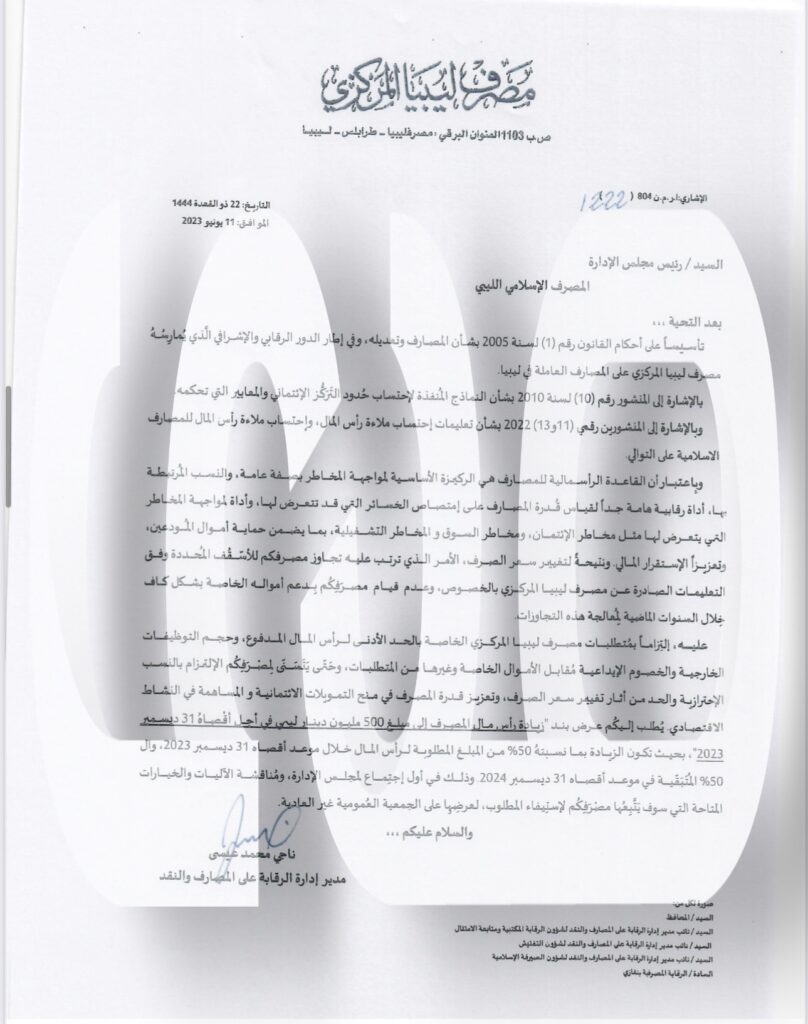 مصرف ليبيا المركزي
ص.ب 1103 العنوان البرقي : مصرفليبيا - طرابلس - ليبيا
الإشاري: ا.ر.م.ن 804 ( 1222
التاريخ: 22 ذو القعدة 1444
الموافق: 11 يونيو 2023
السيد / رئيس مجلس الإدارة
المصرف الإسلامي الليبي
بعد التحية ،،،
تأسيساً على أحكام القانون رقم (1) لسنة 2005 بشأن المصارف وتعديله، وفي إطار الدور الرقابي والإشرافي الَّذي يُمارِسُهُ
مصرف ليبيا المركزي على المصارف العاملة في ليبيا.
بالإشارة إلى المنشور رقم (10) لسنة 2010 بشأن النماذج المُنفذة لإحتساب حُدود التَرَكُّز الإئتماني والمعايير التي تحكمه.
وبالإشارة إلى المنشورين رقمي (11و13) 2022 بشأن تعليمات إحتساب ملاءة رأس المال، وإحتساب ملاءة رأس المال للمصارف
الاسلامية على التوالي.
وباعتبار أن القاعدة الرأسمالية للمصارف هي الركيزة الأساسية لمواجهة المخاطر بصفة عامة، والنسب المُرتبطة
بها، أداة رقابية هامة جداً لقياس قُدرة المصارف على إمتصاص الخسائر التي قد تتعرض لها، وأداة لمواجهة المخاطر
التي يتعرض لها مثل مخاطر الإئتمان، ومخاطر السوق و المخاطر التشغيلية، بما يضمن حماية أموال المُودعين،
وتعزيزاً الإستقرار المالي. ونتيجةً لتغيير سعر الصرف، الأمر الذي ترتب عليه تجاوز مصرفكم للأسْقُف المُحددة وفق
التعليمات الصادرة عن مصرف ليبيا المركزي بالخصوص، وعدم قيام مصرَفِكُم بِدعم أمواله الخاصة بشكل كاف
خِلال السنوات الماضية لِمُعالجة هذه التجاوزات.
عليـه، إلتزاماً بِمُتطلبات مصرف ليبيا المركزي الخاصة بالحد الأدنى لـرأس المال المدفوع، وحجم التوظيفات
الخارجية والخصوم الإيداعية مُقابل الأموال الخاصة وغيرها من المتطلبات، وحَتَّى يَتَسَنَّى لِمَصْرَفِكُم الإلتزام بالنسب
الإحترازية والحد من أثار تغيير سعر الصرف، وتعزيز قدرة المصرف في منح التمويلات الائتمانية و المساهمة في النشاط
الاقتصادي. يُطلب إليكُم عرض بند "زيادة رأس مال المصرف إلى مبلغ 500 مليون دينار ليبي في أجل أقْصاهُ 31 ديسمبر
2023"، بحيث تكون الزيادة بما نسبتهُ 50% من المبلغ المطلوبة لرأس المال خلال موعد أقصاه 31 ديسمبر 2023، وال
50% المُتَبَقِّية في موعد أقصاه 31 ديسمبر 2024. وذلك في أول إجتِماع لمجلس الإدارة، ومُناقشة الآليات والخيارات
المتاحة التي سوف يَتَّبِعُها مصْرَفِكُم لإستيفاء المطلوب، لعرضِها على الجمعية العُمومية غير العادية.
والسلام عليكم ،،،
ناجي محمد عيسى
مدير إدارة الرقابة على المصارف والنقد
صورة لكل من:
السيد / المحافظ
السيد / نائب مدير إدارة الرقابة على المصارف والنقد لشؤون الرقابة المكتبية ومتابعة الامتثال
السيد / نائب مدير إدارة الرقابة على المصارف والنقد لشؤون التفتيش
السيد / نائب مدير إدارة الرقابة على المصارف والنقد لشؤون الصيرفة الإسلامية
السادة / الرقابة المصرفية بنغازي